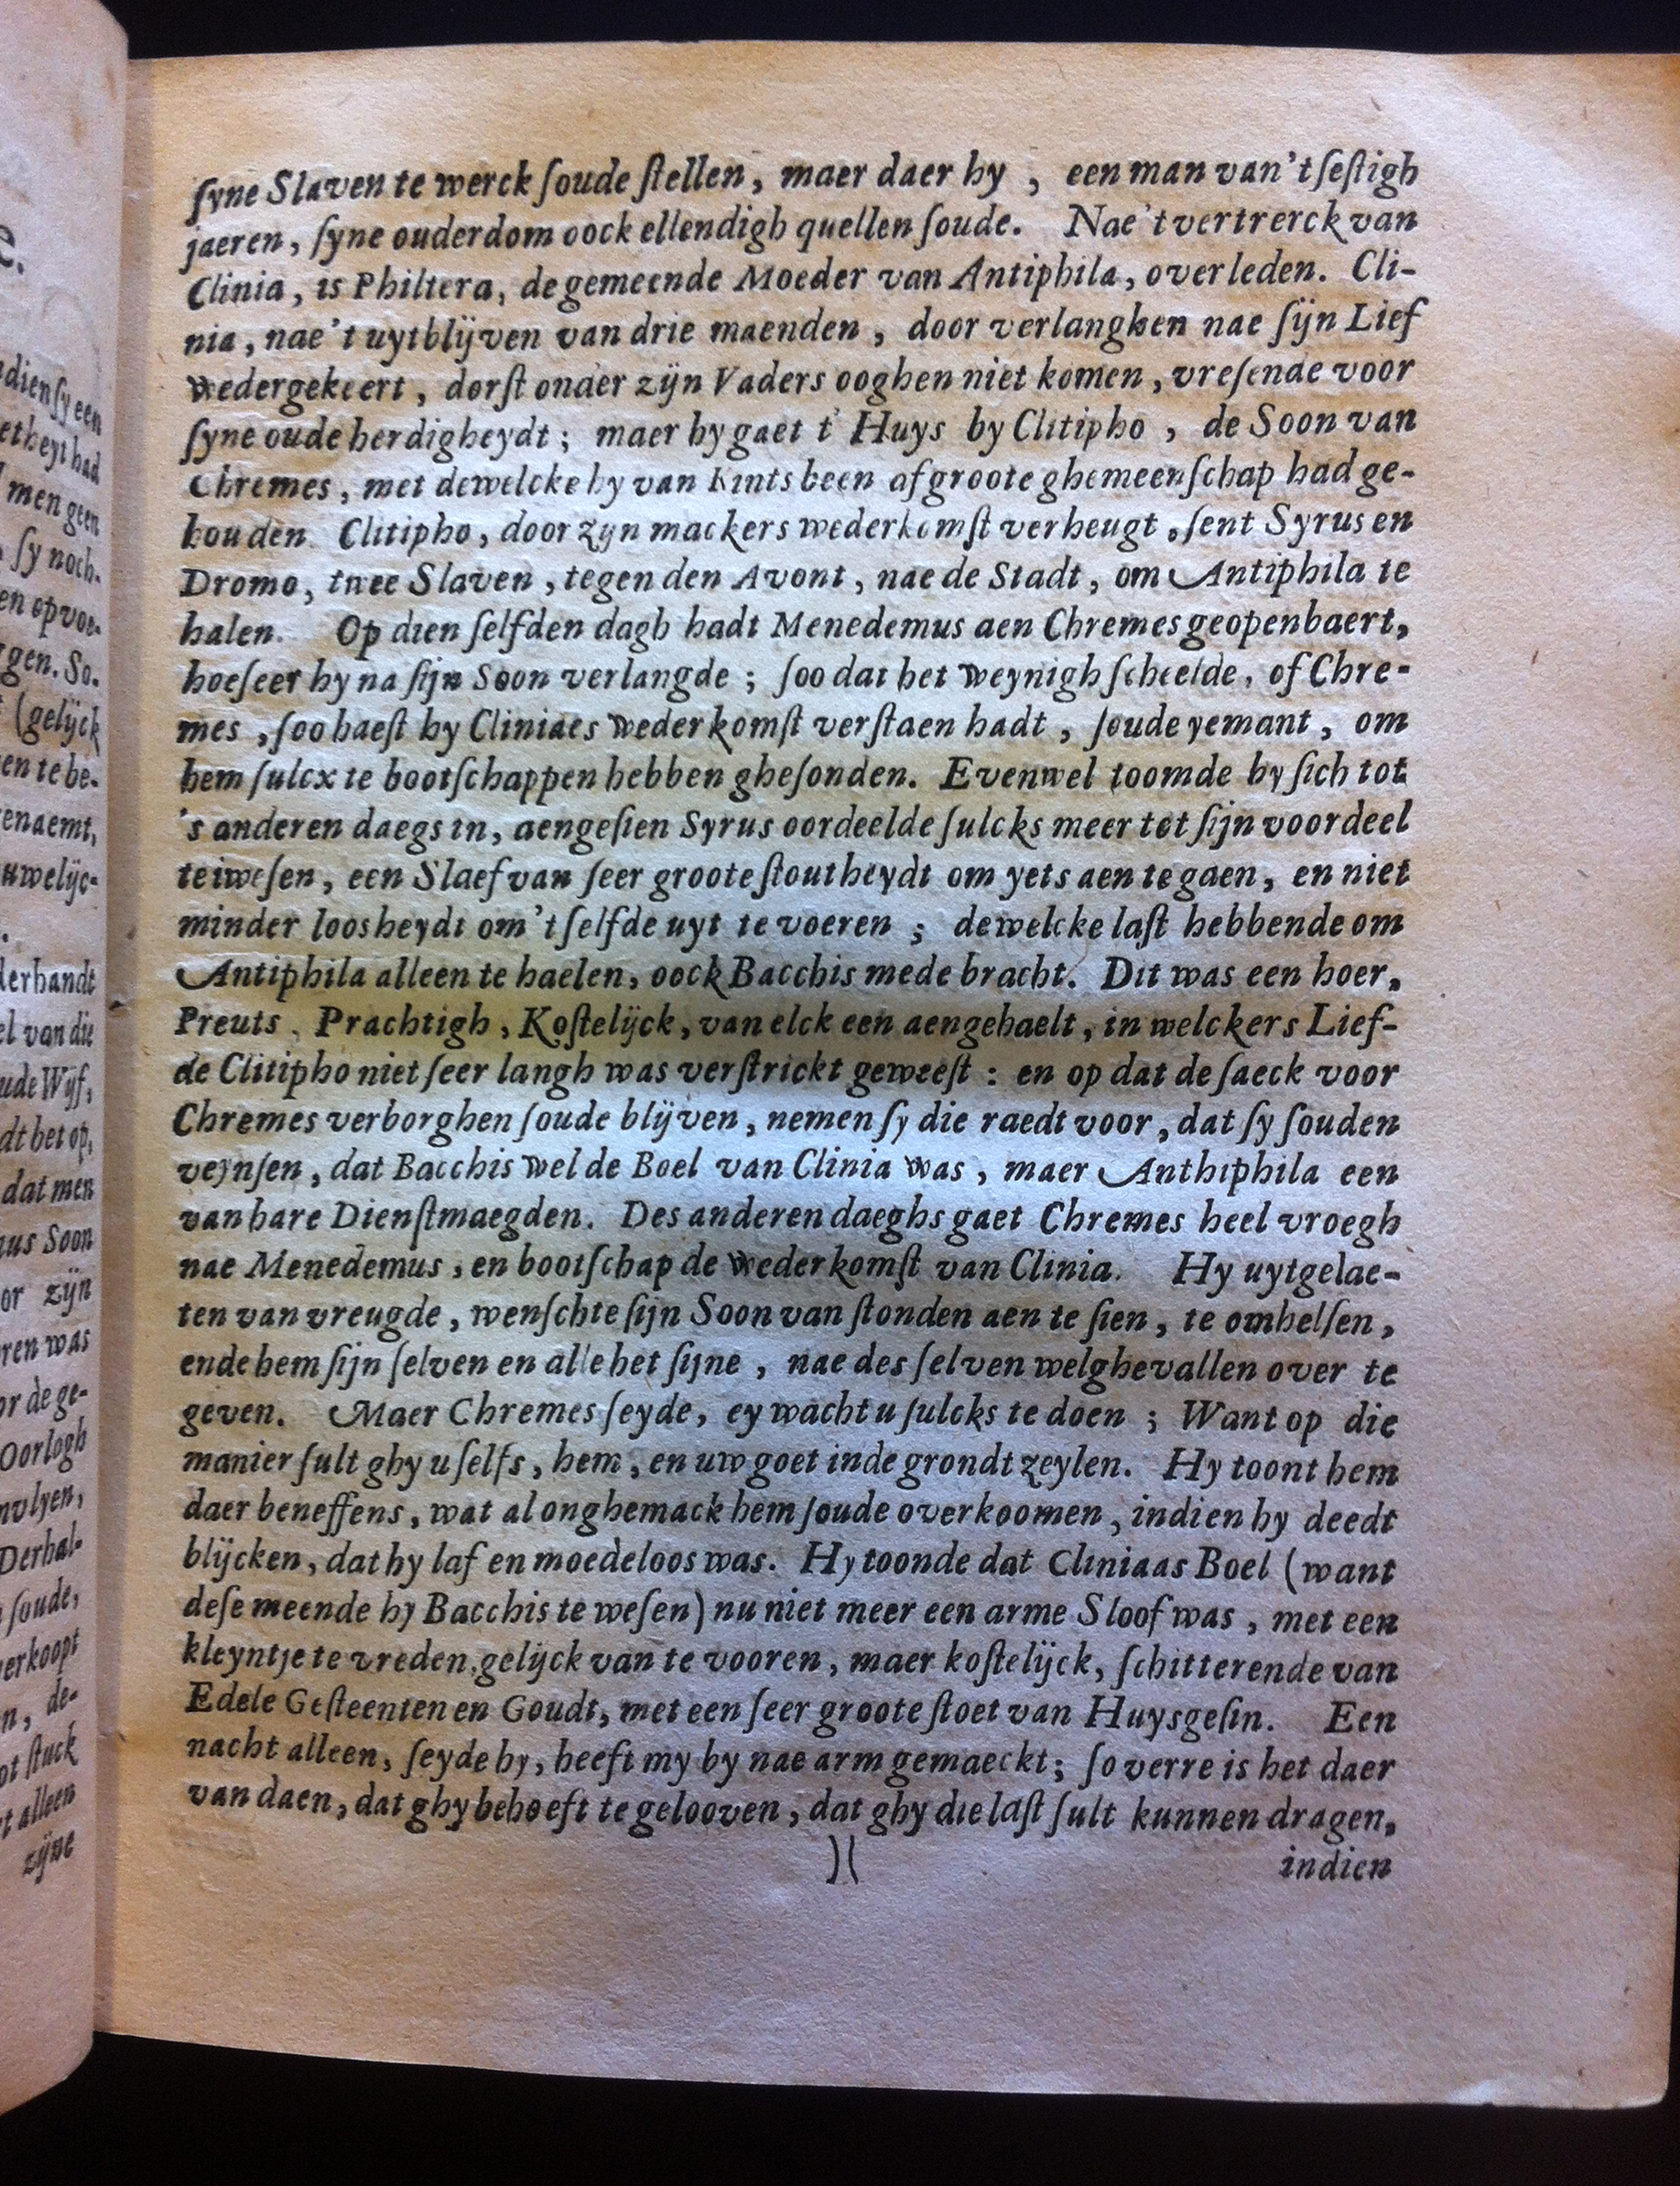 ſyne Slaven te werck ſoude ſtellen, maer daer hy, een man van 't ſeſtigh
jaeren, ſyne ouderdom oock ellendigh quellen ſoude. Nae 't vertrerck van
Clinia, is Philtera, de gemeende Moeder van Antiphila, overleden. Cli-
nia, nae 't uytblijven van drie maenden, door verlanghen nae ſijn Lief
wedergekeert, dorſt onder zijn Vaders ooghen niet komen, vreſende voor
ſyne oude herdigheydt; maer hy gaet t' Huys by Clitipho, de Soon van
Chremes, met dewelcke hy van Kints been af groote ghemeenſchap had ge-
houden. Clitipho, door zyn mackers wederkomſt verheugt, ſent Syrus en
Dromo, twee Slaven, tegen den Avont, nae de Stadt, om Antiphila te
halen. Op dien ſelfden dagh hadt Menedemus aen Chremes geopenbaert,
hoeſeer hy na ſijn Soon verlangde; ſoo dat het weynigh ſcheelde, of Chre-
mes, ſoo haeſt hy Cliniaes wederkomſt verſtaen hadt, ſoude yemant, om
hem ſulcx te bootſchappen hebben gheſonden. Evenwel toomde hy ſich tot
's anderen daegs in, aengeſien Syrus oordeelde ſulcks meer tot ſijn voordeel
te iweſen, een Slaef van ſeer groote ſtoutheydt om yets aen te gaen, en niet
minder loosheydt om 't ſelfde uyt te voeren; dewelcke laſt hebbende om
Antiphila alleen te haelen, oock Bacchis mede bracht. Dit was een hoer,
Preuts, Prachtigh, Koſtelijck, van elck een aengehaelt, in welckers Lief-
de Clitipho niet ſeer langh was verſtrickt geweeſt: en op dat de ſaeck voor
Chremes verborghen ſoude blijven, nemen ſy die raedt voor, dat ſy ſouden
veynſen, dat Bacchis wel de Boel van Clinia was, maer Anthiphila een
van hare Dienſtmaegden. Des anderen daeghs gaet Chremes heel vroegh
nae Menedemus, en bootſchap de wederkomſt van Clinia. Hy uytgelae-
ten van vreugde, wenſchte ſijn Soon van ſtonden aen te ſien, te omhelſen,
ende hem ſijn ſelven en alle het ſijne, nae des ſelven welghevallen over te
geven. Maer Chremes ſeyde, ey wacht u ſulcks te doen; Want op die
manier ſult ghy u ſelfs, hem, en uw goet inde grondt zeylen. Hy toont hem
daer beneffens, wat al onghemack hem ſoude overkoomen, indien hy deedt
blijcken, dat hy laf en moedeloos was. Hy toonde dat Cliniaas Boel (want
deſe meende hy Bacchis te weſen) nu niet meer een arme Sloof was, met een
kleyntje te vreden, gelijck van te vooren, maer koſtelijck, ſchitterende van
Edele Geſteenten en Goudt, met een ſeer groote ſtoet van Huysgeſin. Een
nacht alleen, ſeyde hy, heeft my by nae arm gemaeckt; ſo verre is het daer
van daen, dat ghy behoeft te gelooven, dat ghy die laſt ſult kunnen dragen,
)(
indien
e.
dien ſy een
etheyt had
men geen
ſy noch-
en opvoe-
gen. So-
(gelijck
en te be-
enaemt,
uwelijc-
derhandt
el van die
ude Wijf,
dt het op,
dat men
us Soon
or zijn
ren was
or de ge-
Oorlogh
Derhal-
ſoude,
verkoopt
n, de-
ot ſtuck
t alleen
zijne